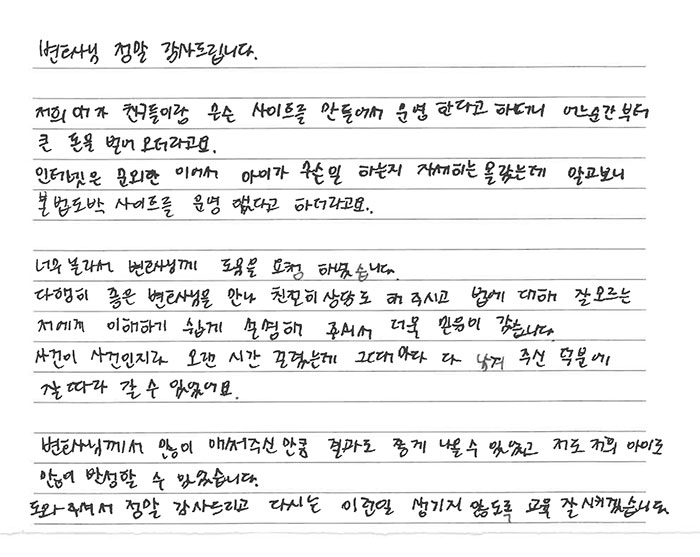 변호사님 정말 감사드립니다.
저희 애가 친구들이랑 무슨 사이트를 만들어서 운영 한다고 하더니 어느순간부터
큰 돈을 벌어 오더라고요.
인터넷은 문외한 이어서 아이가 무슨일 하는지 자세히는 몰랐는데 알고보니
불법도박 사이트를 운영 했다고 하더라고요.
너무 놀라서 변호사님께 도움을 요청 하였습니다.
다행히 좋은 변호사님을 만나 친절히 상담도 해 주시고 법에 대해 잘모르는
저에게 이해하기 쉽게 설명해 주셔서 더욱 믿음이 갔습니다.
사건이 사건인지라 오랜 시간 걸렸는데 그때마다 다 남겨 주신 덕분에
잘 따라 갈 수 있었어요.
변호사님께서 많이 애써주신 만큼 결과도 좋게 나올 수 있었고 저도 저희 아이도
많이 반성할 수 있었습니다.
도와 주셔서 정말 감사드리고 다시는 이런일 생기지 않도록 교육 잘 시키겠습니다.